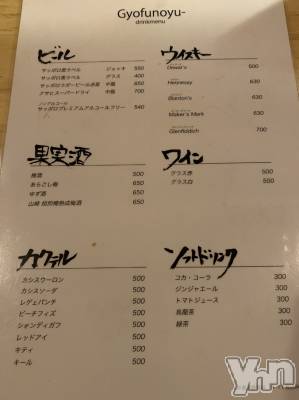 Gyofunoyu-
drinkmenu
ビール
サッポロ黒ラベル ジョッキ 550
サッポロ黒ラベル グラス 400
サッポロラガービール赤星 中瓶 700
アサヒスーパードライ 中瓶 700
ノンアルコール
サッポロプレミアムアルコールフリー 540
果実酒
梅酒 500
あらごし梅 650
ゆず酒 650
山崎 焙煎樽熟成梅酒 650
カクテル
カシスウーロン 500
カシスソーダ 500
レゲェパンチ 500
ピーチフィズ 500
シャンディガフ 500
レッドアイ 500
キティ 500
キール 500
ウイスキー
Dewar's 500
Hennessy 630
Blanton's 630
Maker's Mark 630
Glenfiddich 700
ワイン
グラス赤 500
グラス白 500
ソフトドリンク
コカ・コーラ 300
ジンジャエール 300
トマトジュース 300
烏龍茶 300
緑茶 300